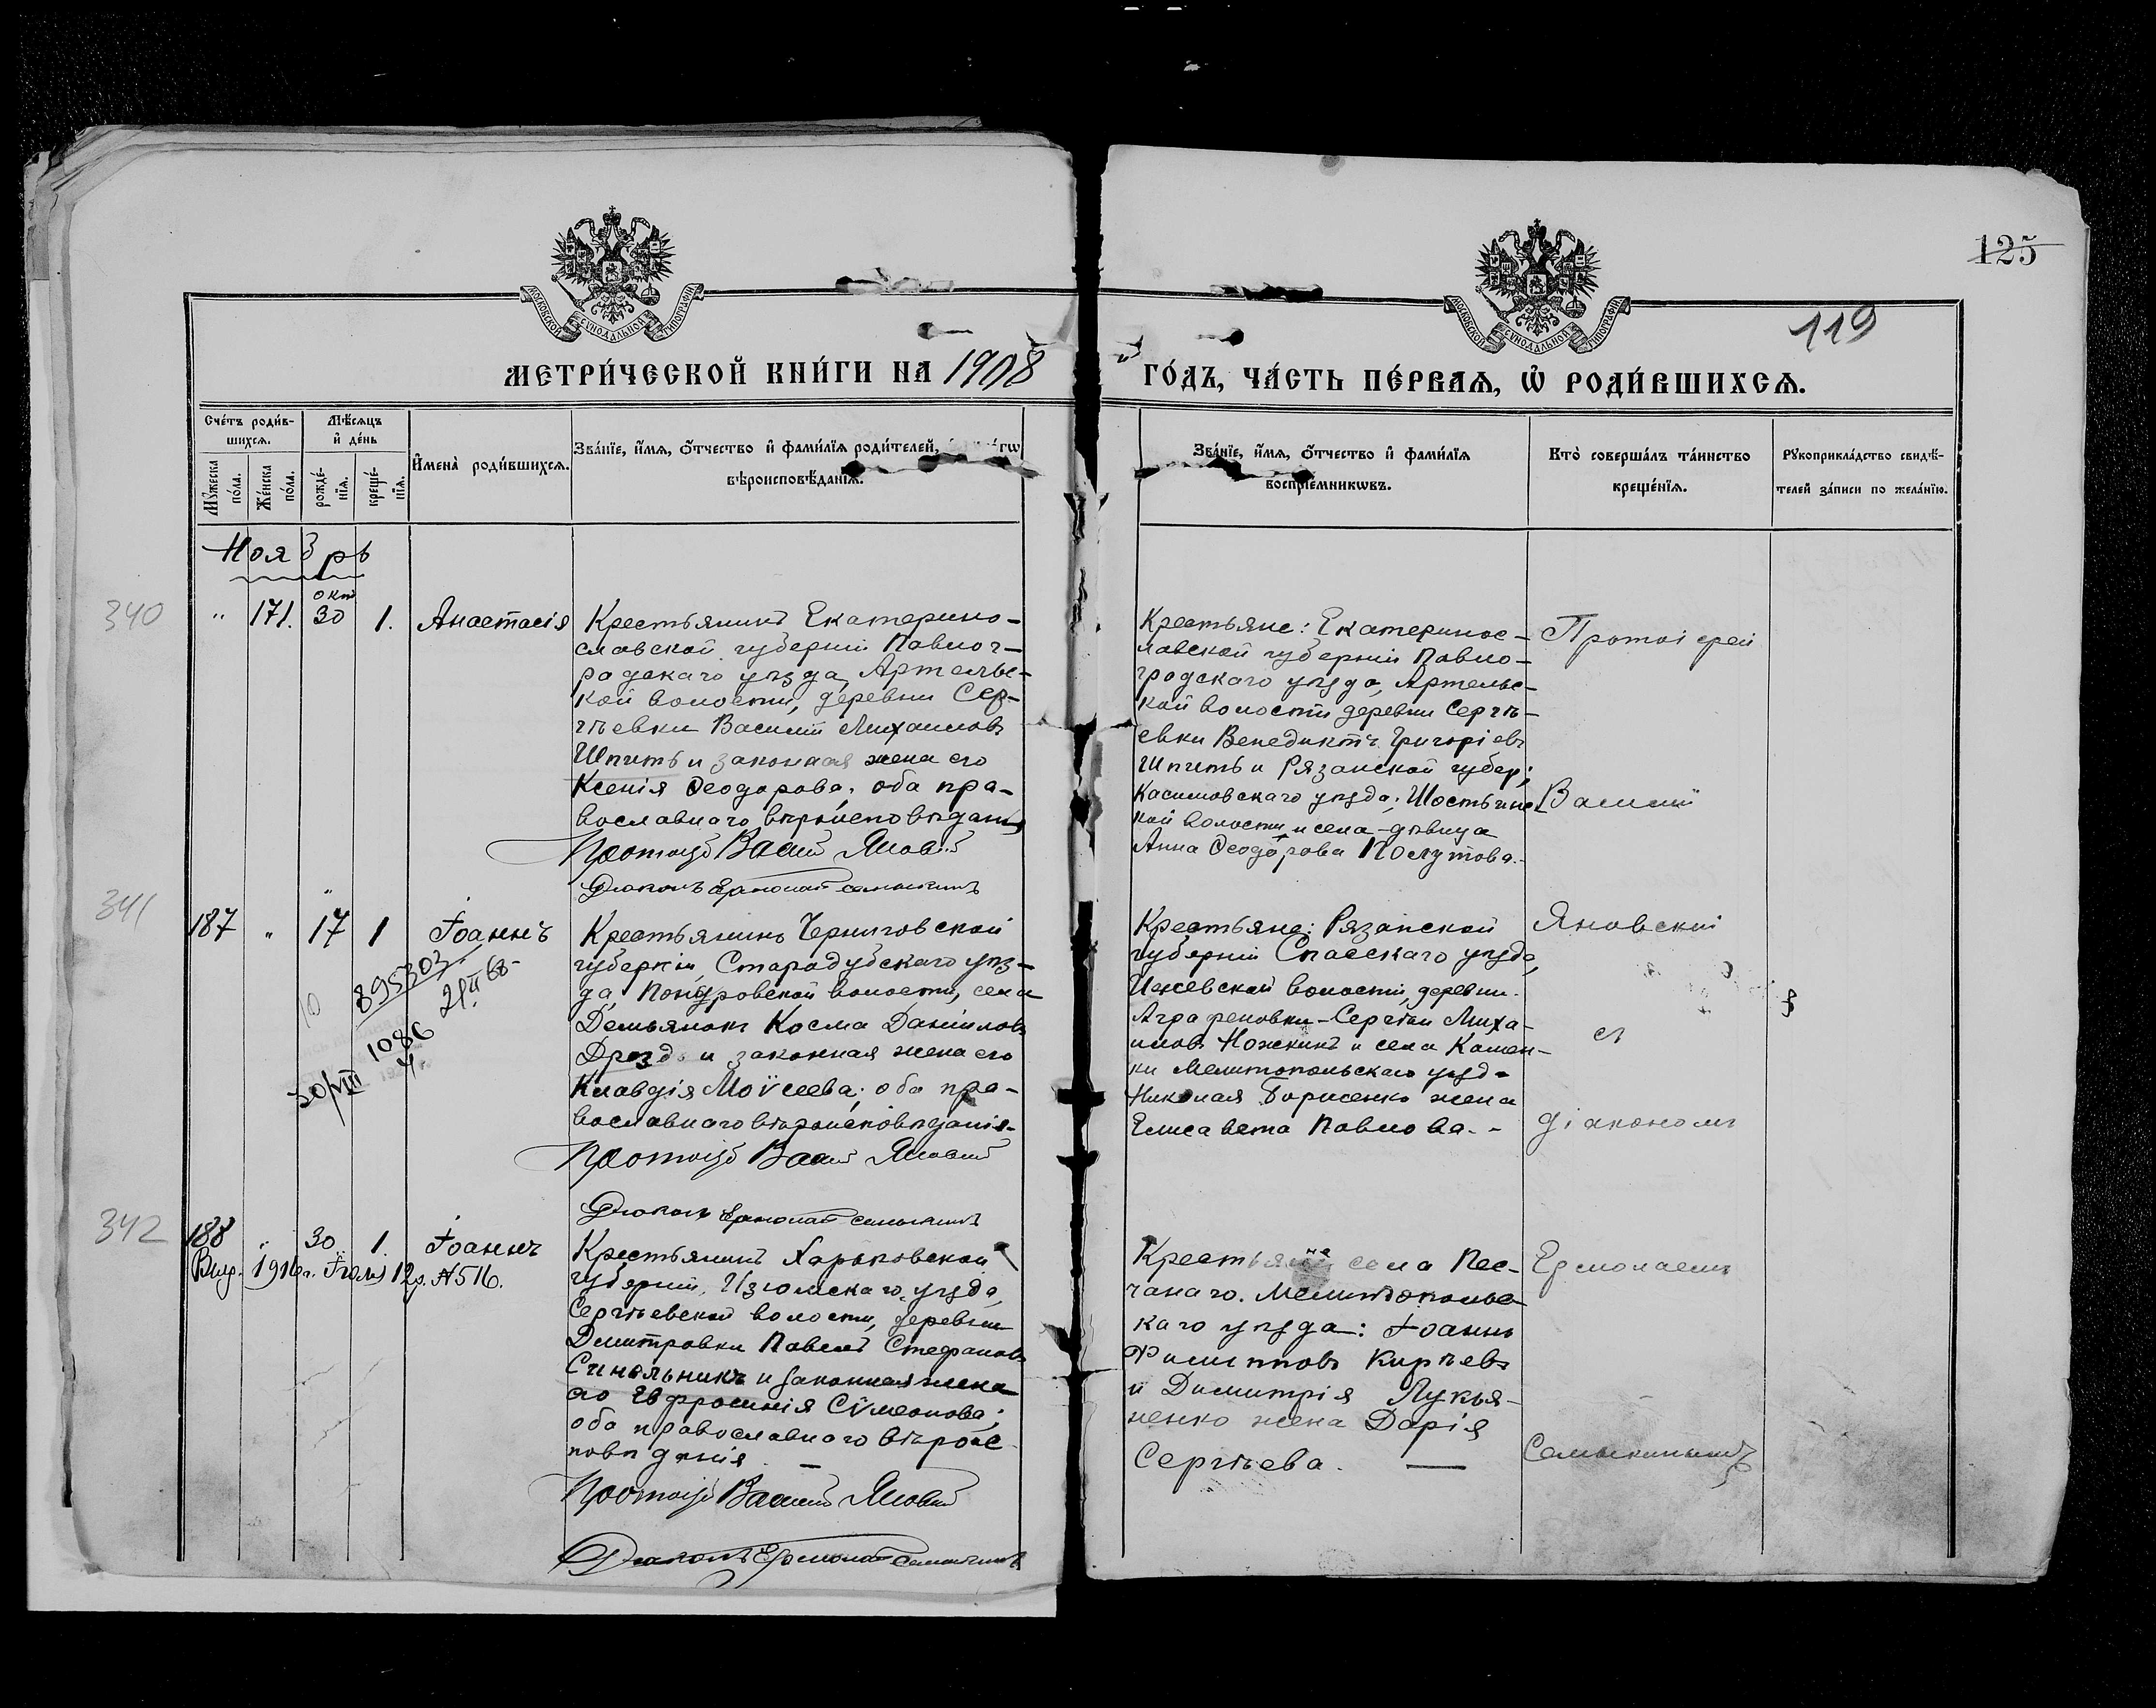 125
119
МОСКОВСКОЙ СУНОДАЛЬНОЙ ТИПОГРАФІИ
МОСКОВСКОЙ СУНОДАЛЬНОЙ ТИПОГРАФІИ
МЕТРИ́ЧЕСКОЙ КНИ́ГИ НА 1908
ГО́ДЪ, ЧА́СТЬ ПЕ́РВАѦ, Ѡ҆ РОДИ́ВШИХСѦ.
Сче́тъ роди́в-
шихсѧ.
Мѣ́сѧцъ
и҆ де́нь
Мꙋ́жеска
по́ла.
Же́нска
по́ла.
рожде́-
нїѧ.
креще́-
нїѧ.
И҆мена̀ роди́вшихсѧ.
Зва́нїе, и҆́мѧ, ѻ҆́тчество и҆ фами́лїѧ роди́телей,
вѣроисповѣ́данїѧ.
Зва́нїе, и҆́мѧ, ѻ҆́тчество и҆ фами́лїѧ
воспрїе́мникѡвъ.
Кто̀ соверша́лъ та́инство
креще́нїѧ.
Рꙋкоприкла́дство свидѣ́-
телей за́писи по жела́нїю.
Ноябрь
340
" 171. окт 30 1. Анастасія
Крестьянинъ Екатерино-
славской губерніи Павлог-
радскаго уѣзда, Артельс-
кой волости, деревни Сер-
гѣевки Василій Михаиловъ
Шпить и законная жена его
Ксенія Ѳеодорова; оба пра-
вославнаго вѣроисповѣданія
Протоіер. Василій Яновскій
Діаконъ Ермолай Семыкинъ
Крестьяне: Екатеринос-
лавской губерніи Павло-
градскаго уѣзда, Артельс-
кой волости деревни Сергѣ-
евки Венедиктъ Григоріевъ
Шпить и Рязанской губер;
Касимовскаго уѣзда,
кой волости и села - дѣвица
Анна Ѳеодорова Полутова.
Протоіерей
Василій
341
187 " 17 1 Іоаннъ
10
895303
21 II 68
1086
30/VIII
Крестьянинъ Черниговской
губерніи, Стародубскаго уѣз-
да, Понуровской волости, села
Демьянокъ Косма Даніиловъ
Дрозд и законная жена его
Клавдія Моѵсеева; оба пра-
вославнаго вѣроисповѣданія.
Протоіер. Василій Яновскій
Діаконъ Ермолай Семыкинъ
Крестьяне: Рязанской
губерніи Спасскаго уѣзда,
Ижевской волости, деревни
Аграфеновки - Сергѣй Миха-
иловъ Ножкинъ и села Камен-
ки Мелитопольскаго уѣзда
Николая Борисенко жена
Елисавета Павлова. -
Яновскій
съ
діакономъ
342
188 " 30 1. Іоаннъ
Выд. 1916 г. Іюля 12 д. №516.
Крестьянинъ Харьковской
губерніи, Изюмскаго уѣзда,
Сергѣевской волости, деревни
Дмитровки Павелъ Стефановъ
Синельникъ и законная жена
его Евфросинія Сѵмеонова;
оба православнаго вѣроис-
повѣданія. —
Протоіер. Василій Яновскій
Діаконъ Ермолай Семыкинъ
Крестьяне села Пес-
чанаго. Мелитопольс-
каго уѣзда: Іоаннъ
Филипповъ Кирѣевъ
и Димитрія Лукья-
ненко жена Дарія
Сергѣева. —
Ермолаемъ
Семыкинымъ